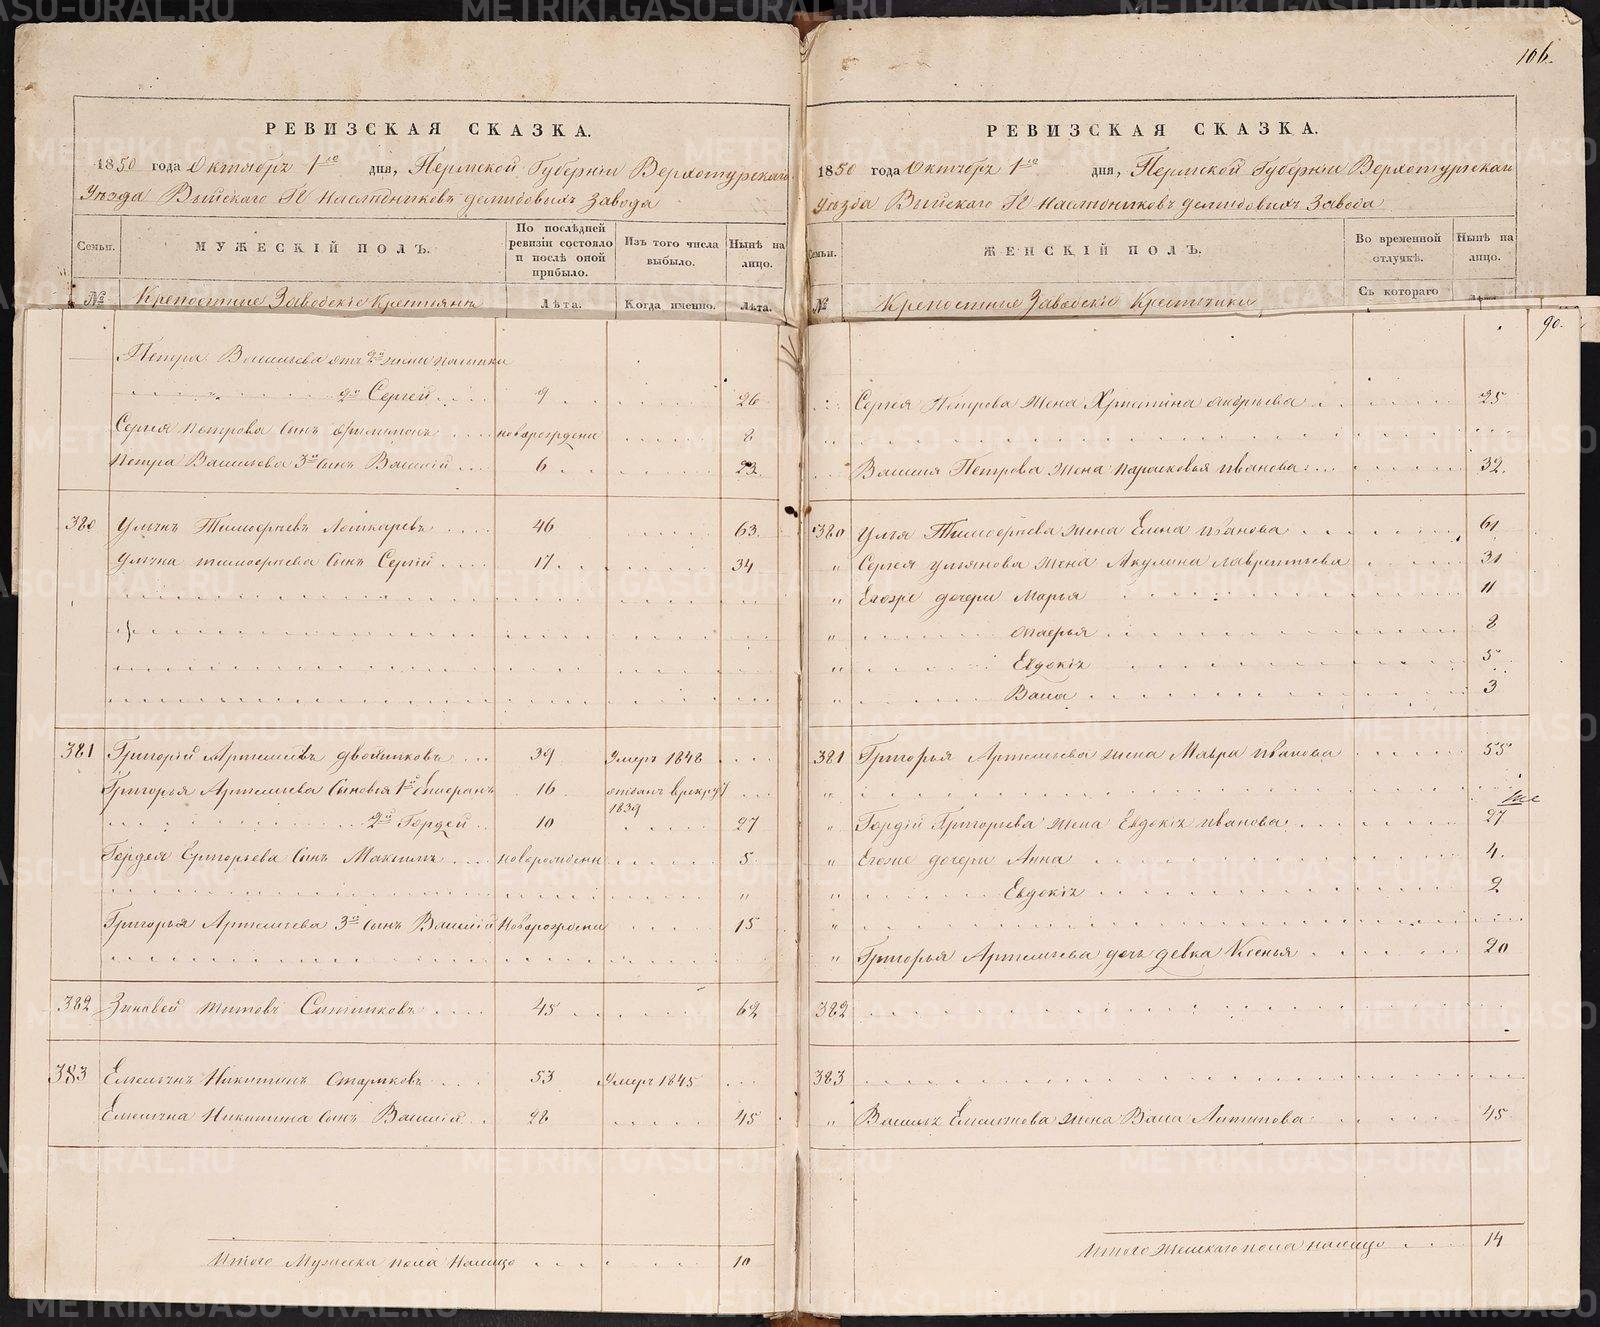 106.
РЕВИЗСКАЯ СКАЗКА.
1850 года Октябръ 1го дня, Пермской Губерніи Верхотурскаго
Уѣзда Выйскаго Гг Наслѣдниковъ демидовыхъ Завода
Семьи.
МУЖЕСКІЙ ПОЛЪ.
По послѣдней ревизіи состояло и послѣ оной прибыло.
Изъ того числа выбыло.
Нынѣ на лицо.
№
Крепостные Заводскіе Крестьянъ
Лѣта.
Когда именно.
Лѣта.
Петра Васильева отъ 2й жены
2й Сергей 9 26
Сергея Петрова Сынъ Филимонъ новорожденъ 8
Петра Васильева 3й Сынъ Василій 6 23
380 Ульянъ Тимофеевъ Лошкаревъ 46 63
Ульяна тимофеева Сынъ Сергѣй 17 34
381 Григорій Артемьевъ двойниковъ 39 Умеръ 1848
Григорья Артемьева Сыновья 1й 16 отданъ в рекруты 1839
2й Гордей 10 27
Гордея Григорьева Сынъ Максимъ новорожденъ 5
Григорья Артемьева 3й Сынъ Василій Новорожденъ 15
382 Зиновей титовъ Ситниковъ 45 62
383 Емельянъ Никитинъ Стариковъ 53 Умеръ 1845
Емельяна Никитина Сынъ Василій 28 45
Итого Мужеска пола Налицо 10
РЕВИЗСКАЯ СКАЗКА.
1850 года Октябръ 1го дня, Пермской Губерніи Верхотурскаго
Уѣзда Выйскаго Гг Наслѣдниковъ демидовыхъ Завода
Семьи.
ЖЕНСКІЙ ПОЛЪ.
Во временной отлучкѣ.
Нынѣ на лицо.
№
Крепостные Заводскіе Крестьянки
Съ котораго
90.
Сергея Петрова Жена Христина 25
Василья Петрова жена парасковья иванова 32
380 Ульяна Тимофеева жена Елена иванова 61
Сергея ульянова жена Акулина лаврентьева 31
Егоже дочери Марья 11
8
Евдокія 5
Васа 3
381 Григорья Артемьева жена Мавра иванова 55
Гордія Григорьева жена Евдокія иванова 27
Егоже дочери Анна 4
Евдокія 2
Григорья Артемьева дочь девка Ксенья 20
382
383
Василья Емельянова жена Васа Антипова 45
Итого женскаго пола налицо 14
METRIKI.GASO-URAL.RU